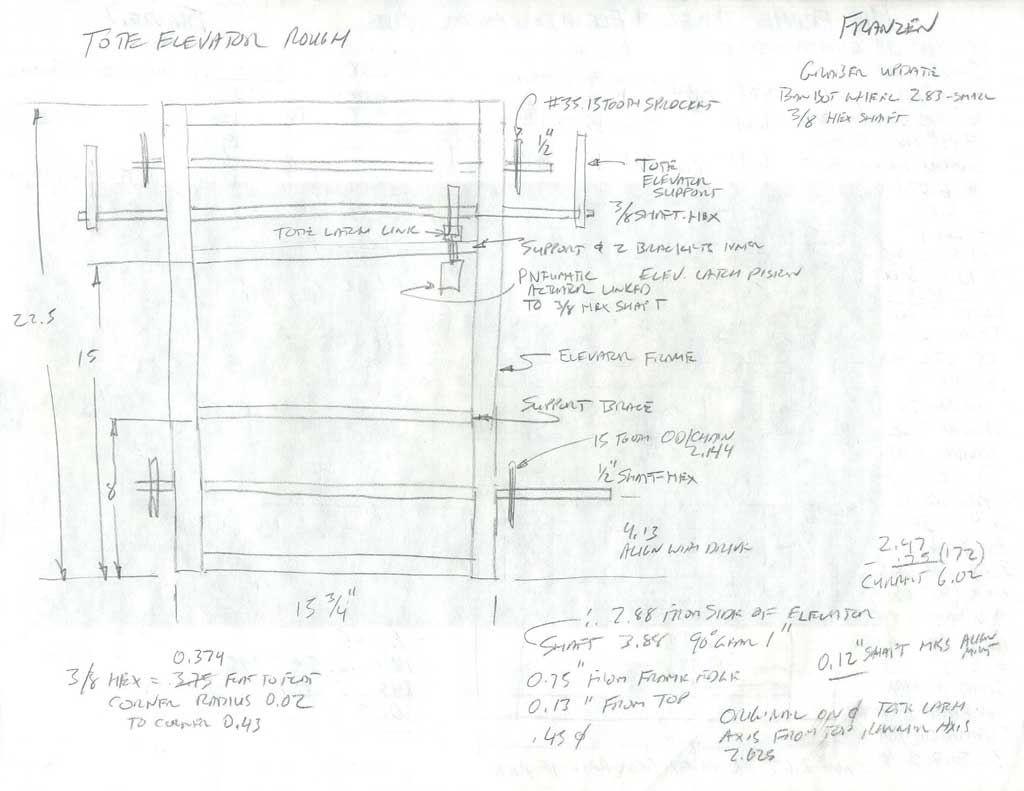 TOTE ELEVATOR ROUGH
FRANZEN
GRABER UPDATE
BANBOT WHEEL 2.83-SMALL
3/8 HEX SHAFT
#35 15 TOOTH SPROCKET
1/2"
TOTE
ELEVATOR
SUPPORT
3/8 SHAFT-HEX
TOTE LATCH LINK
SUPPORT & 2 BRACKETS INNER
PNEUMATIC ELEV. LATCH DESIGN
ACTUATOR LINKED
TO 3/8 HEX SHAFT
22.5
15
ELEVATOR FRAME
SUPPORT BRACE
15 TOOTH OD/CHAIN
2.144
1/2" SHAFT-HEX
8
4.13
ALIGN WITH DRIVE
2.47
.75 (172)
CURRENT 6.02
15 3/4"
∴ 2.88 FROM SIDE OF ELEVATOR
SHAFT 3.88 90° GEAR 1"
0.12" SHAFT MISS ALIGN
MENT
0.374
3/8 HEX = .375 FLAT TO FLAT
CORNER RADIUS 0.02
TO CORNER 0.43
0.75" FROM FRAME EDGE
0.13" FROM TOP
.45 ⌀
ORIGINAL ON ¢ TOTE LATCH
AXIS FROM TOP, LOWER AXIS
2.625